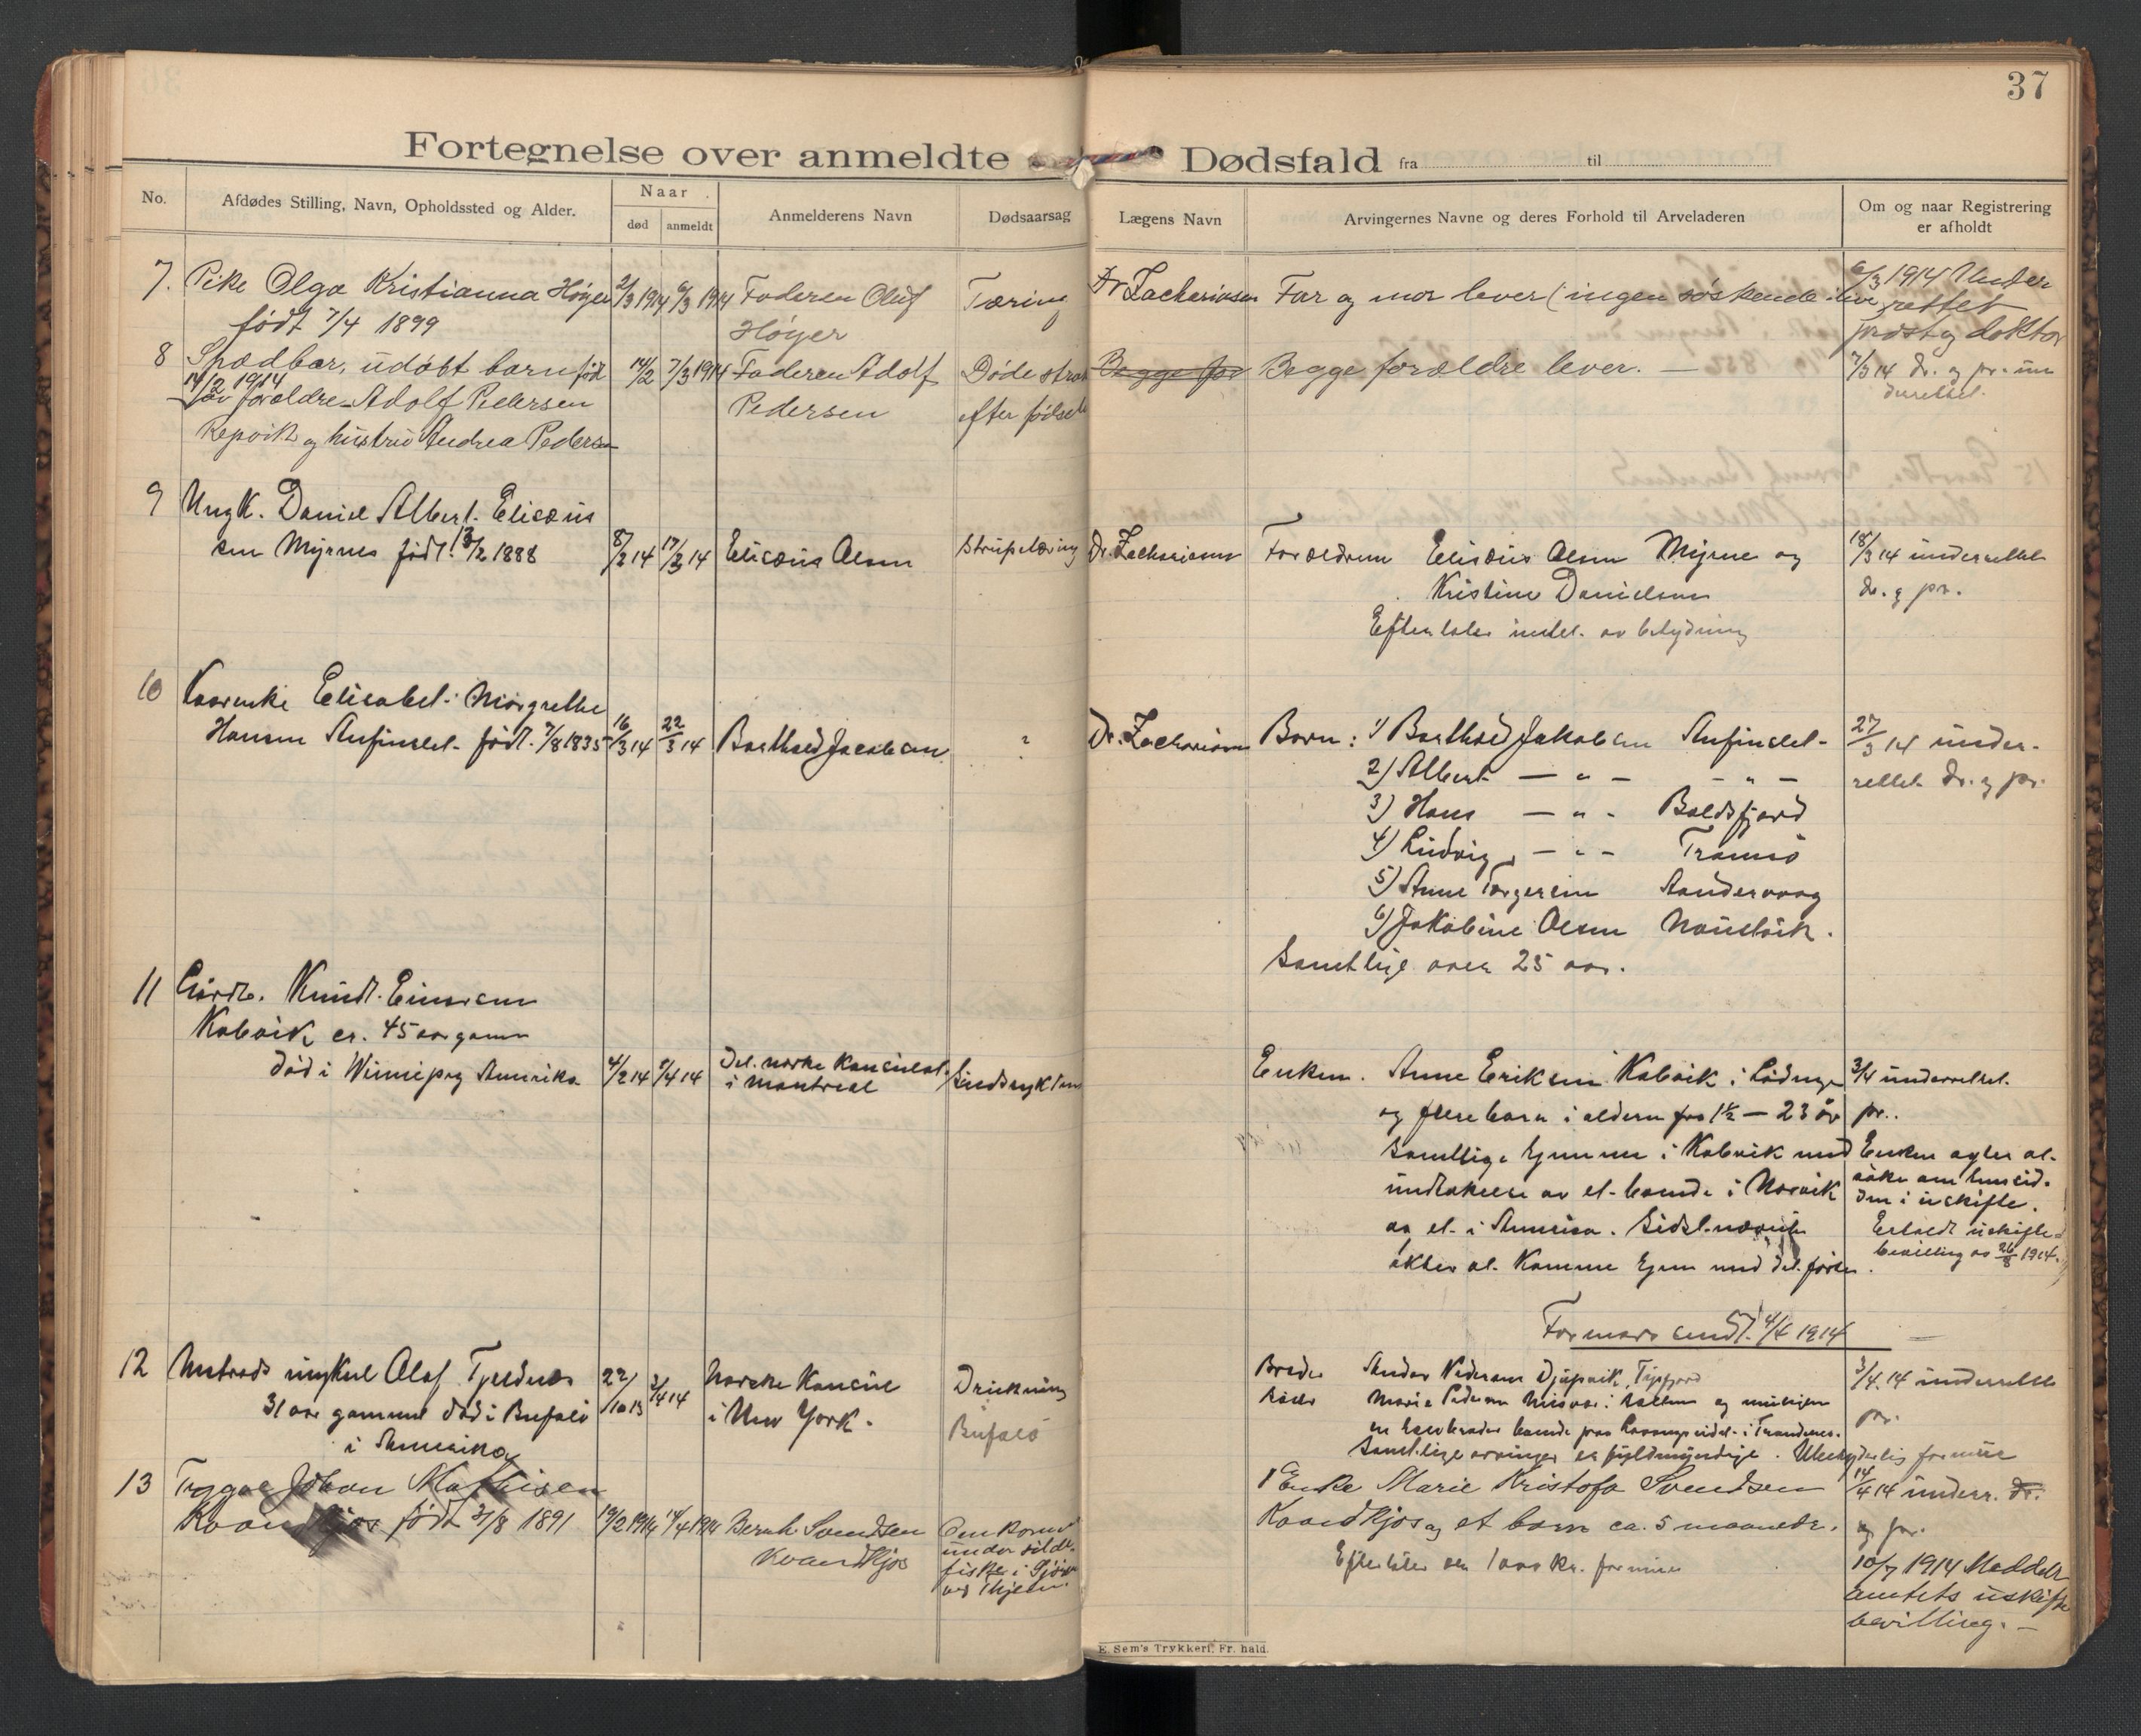 37
Fortegnelse over anmeldte Dødsfald fra til
No.
Afdødes Stilling, Navn, Opholdssted og Alder.
Naar
død
anmeldt
Anmelderens Navn
Dødsaarsag
Lægens Navn
Arvingernes Navne og deres Forhold til Arveladeren
Om og naar Registrering
er afholdt
7. Pike Olga Kristianna Höyer 2/3 1914 6/3 1914 Faderen Oluf Tæring Dr Zachariasen Far og mor lever (ingen søskende ilive 6/3 1914 Under
født 7/4 1899 Höyer rettet
prost og doktor
8 Spædbar, udöbt barn fød 14/2 7/3 1914 Faderen Adolf Døde strak Begge for Begge forældre lever. — 7/3 14 dr. og pr. un
14/2 1914 derettet.
av forældre Adolf Pedersen Pedersen efter fødsel
Repvik og hustru Andrea Pedersen
9 Ungk. Daniel Albert Elisæus
sen Myrnes født 13/2 1888 8/2 14 17/3 14 Elisæus Olsen Strupetæring Dr. Zachariasen Forældrene Elisæus Olsen Myrnes og 18/3 14 underrettet
Kristine Danielsen dr. og pr.
Efterlater intet av betydning
10 Kaarenke Elisabet Margrethe
Hansen Anfinslet født 7/8 1835 16/3 14 22/3 14 Barthold Jacobsen ? Dr. Zachariasen Børn: 1) Barthold Jakobsen Anfinslet 27/3 14 under-
2) Albert — " — — " — rettet dr. og pr.
3) Hans — " - Baldsfjord
4) Ludvig — " — Tromsö
5) Anne Torgersen Sandervaag
6) Jakobine Olsen
Samtlige over 25 aar.
11 Gårdb. Knudt Einarsen
Kobvik ca. 45 aar gamm
død i Winnipeg Amerika 4/2 14 2/4 14 Det norske Konsulat Sindssykdom Enken. Anne Eriksen Kobvik i Lødingen 3/4 underrettet
i Montreal og flere barn i alderen fra 1½ — 23 år pr..
samtlige hjemme i Kobvik med Enken agter at
undtakelse av et boende i Narvik søke om hensid-
og et i Amerika. Sidstnævnte den i uskifte.
akter at komme hjem med det første. Erholdt uskifte
bevilling av 26/8 1914.
Formars sendt 4/4 1914
12 Matros ungkarl Olaf Tjeldnes 22/10 13 3/4 14 Norske Konsul Drukning Broder Peder Pedersen Djupvik, Tysfjord 3/4 14 underrettet
31 aar gammel død i Bufalo i New York. Bufalo Søster Marie Pedersen pr.
i Amerika en halvbroder boende paa i Trondenes.
Samtlige arvinger er fuldmyndige. Ubetydelig formue
13 Tryggve Johan Mathisen 1 Enke Marie Kristofa Svendsen 14/4 14 underr. dr.
Kvandkjos født 31/8 1891 19/2 1914 14/4 1914 Bernh. Svendsen Omkommet Kvandkjos og et barn ca. 5 maaneder. og pr.
Kvandkjos under silde- Efterlater ca 1000 kr. formue 10/7 1914 Meddelt
fiske i amtets uskifte
bevilling. —
E. Sem's Trykkeri, Fr. hald.